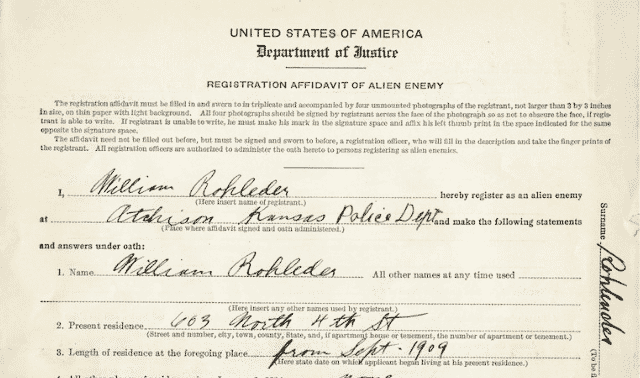 UNITED STATES OF AMERICA
Department of Justice
REGISTRATION AFFIDAVIT OF ALIEN ENEMY
The registration affidavit must be filled in and sworn to in triplicate and accompanied by four unmounted photographs of the registrant, not larger than 3 by 3 inches
in size, on thin paper with light background. All four photographs should be signed by registrant across the face of the photograph so as not to obscure the face, if regis-
trant is able to write. If registrant is unable to write, he must make his mark in the signature space and affix his left thumb print in the space indicated for the same
opposite the signature space.
The affidavit need not be filled out before, but must be signed and sworn to before, a registration officer, who will fill in the description and take the finger prints of
the registrant. All registration officers are authorized to administer the oath hereto to persons registering as alien enemies.
I, William Rohleder hereby register as an alien enemy
(Here insert name of registrant.)
at Atchison Kansas Police Dept and make the following statements
(Place where affidavit signed and oath administered.)
and answers under oath:
1. Name William Rohleder All other names at any time used
(Here insert any other names used by registrant.)
2. Present residence 603 North 4th St
(Street and number, city, town, county, State, and, if apartment house or tenement, the number of apartment or tenement.)
3. Length of residence at the foregoing place from Sept - 1909
(Here state date on which applicant began living at his present residence.)
Surname Rohleder